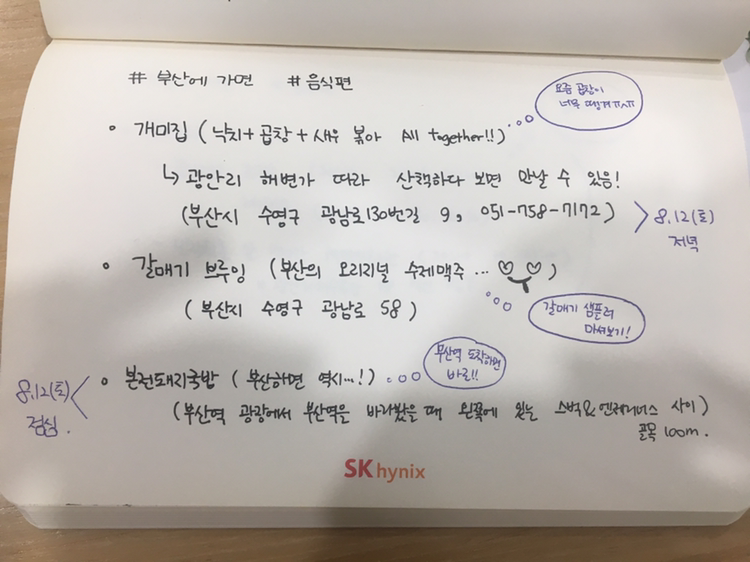 # 부산에 가면 # 음식편
요즘 곱창이
너무 땡겨ㅠㅠ
개미집 (낙지+곱창+새우 볶아 All together!!)
↳ 광안리 해변가 따라 산책하다 보면 만날 수 있음!
(부산시 수영구 광남로130번길 9, 051-758-7172)
8.12(토)
저녁
갈매기 브루잉 (부산의 오리지널 수제맥주 ... )
(부산시 수영구 광남로 58)
갈매기 샘플러
마셔보기!
부산역 도착하면
바로!!
8.12(토)
점심.
본전돼지국밥 (부산하면 역시...!)
(부산역 광장에서 부산역을 바라봤을 때 왼쪽에 있는 스벅&엔제리너스 사이)
골목 100m.
SK hynix